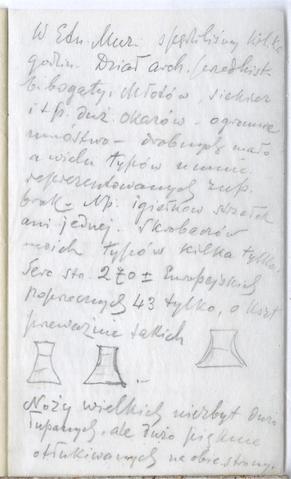 W Etn. Muz. spędziliśmy kilka
godzin. Dział arch. /przedhist.
b. bogaty. Młotów, siekier
i t p. duż. okazów – ogromne
mnóstwo – drobnych mało
a wielu typów
reprezentowanych zup.
brak – Np. igiełkow
ani jednej. Skrobaczów
moich typów kilka tylko.
270 ± Europejskich
poprzecznych 43 tylko, o kszt
przeważnie takich
Noży wielkich niezbyt dużo
łupanych, ale dużo pięknie
otłukiwanych na obie strony.